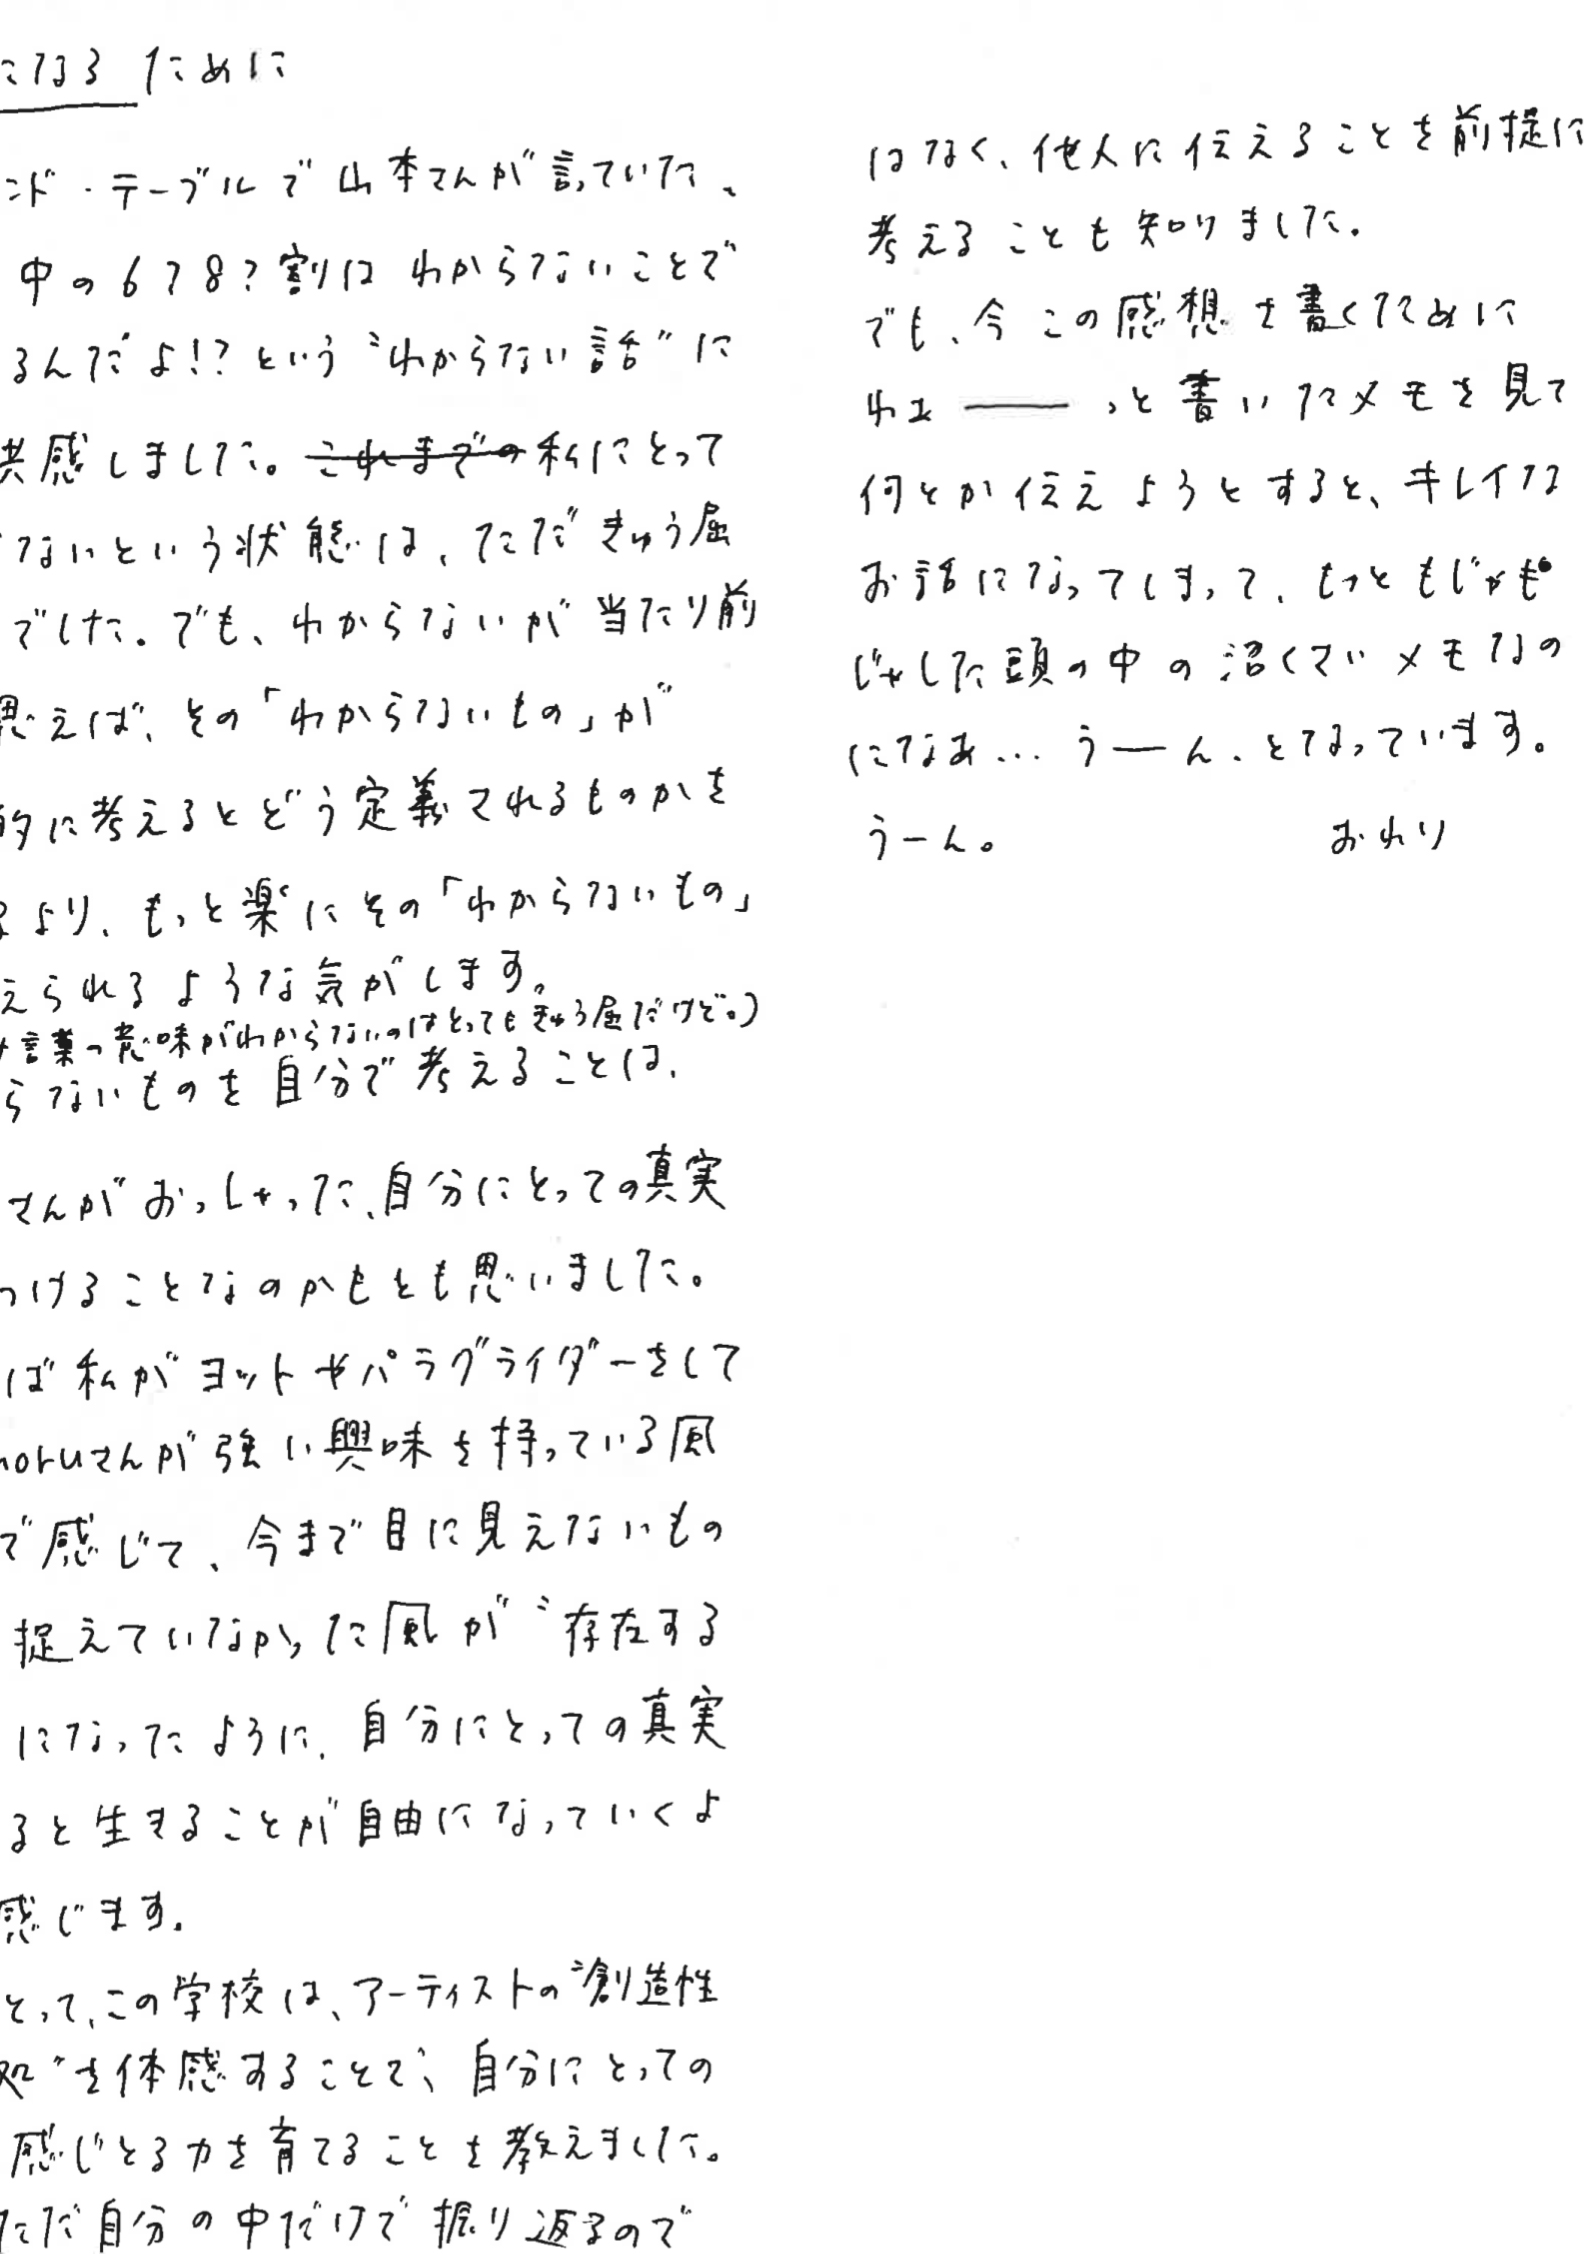 になるために
ンド・テーブルで山本さんが言っていた、
中の6?8?割はわからないことで
るんだよ!?という"わからない話"に
共感しました。これまでの私にとって
ないという状態は、ただきゅう屈
でした。でも、わからないが当たり前
思えば、その「わからないもの」が
的に考えるとどう定義されるものかを
より、もっと楽にその「わからないもの」
えられるような気がします。
言葉の意味がわからないのはとってもきゅう屈だけど。)
らないものを自分で考えることは、
さんがおっしゃった、自分にとっての真実
つけることなのかもとも思いました。
ば私がヨットやパラグライダーをして
noruさんが強い興味を持っている風
で感じて、今まで目に見えないもの
捉えていなかった風が"存在する
になったように、自分にとっての真実
ると生きることが自由になっていくよ
感じます。
とって、この学校は、アーティストの"創造性
処"を体感することで、自分にとっての
感じとる力を育てることを教えました。
ただ自分の中だけで振り返るので
はなく、他人に伝えることを前提に
考えることも知りました。
でも、今この感想を書くために
わぁ――っと書いたメモを見て
何とか伝えようとすると、キレイな
お話になってしまって、もっともじゃも
じゃした頭の中の沼くさいメモなの
になあ...うーん、となっています。
うーん。 おわり